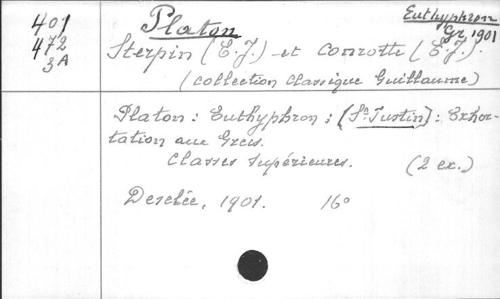 401
472
3A
Platon
Euthyphron
Gr. 1901
Sterpin (E.J.) et Conrotte (E.J.).
(Collection Classique Guillaume)
Platon: Euthyphron; [St Justin]: Exhor-
tation aux Grecs.
Classes supérieures. (2 ex.)
Desclée, 1901. 16°